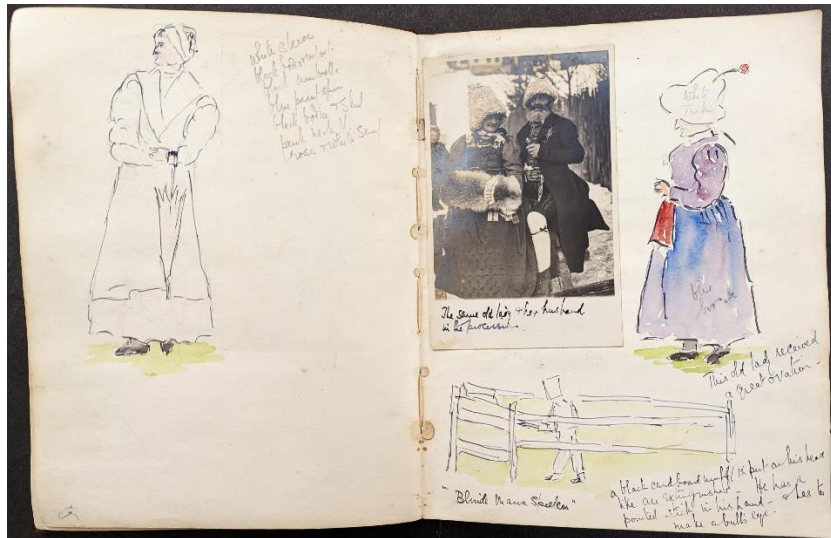 white sleeves
black
black umbrella
blue print apron
black bodice & skirt
neck
rose & white
The same old lady & her husband
in the procession.
White
blue
This old lady received
a great ovation -
"Blinde Mann
a black cardboard is put on his head
like an extinguisher. He has a
pointed stick in his hand - & has to
make a bull's eye.